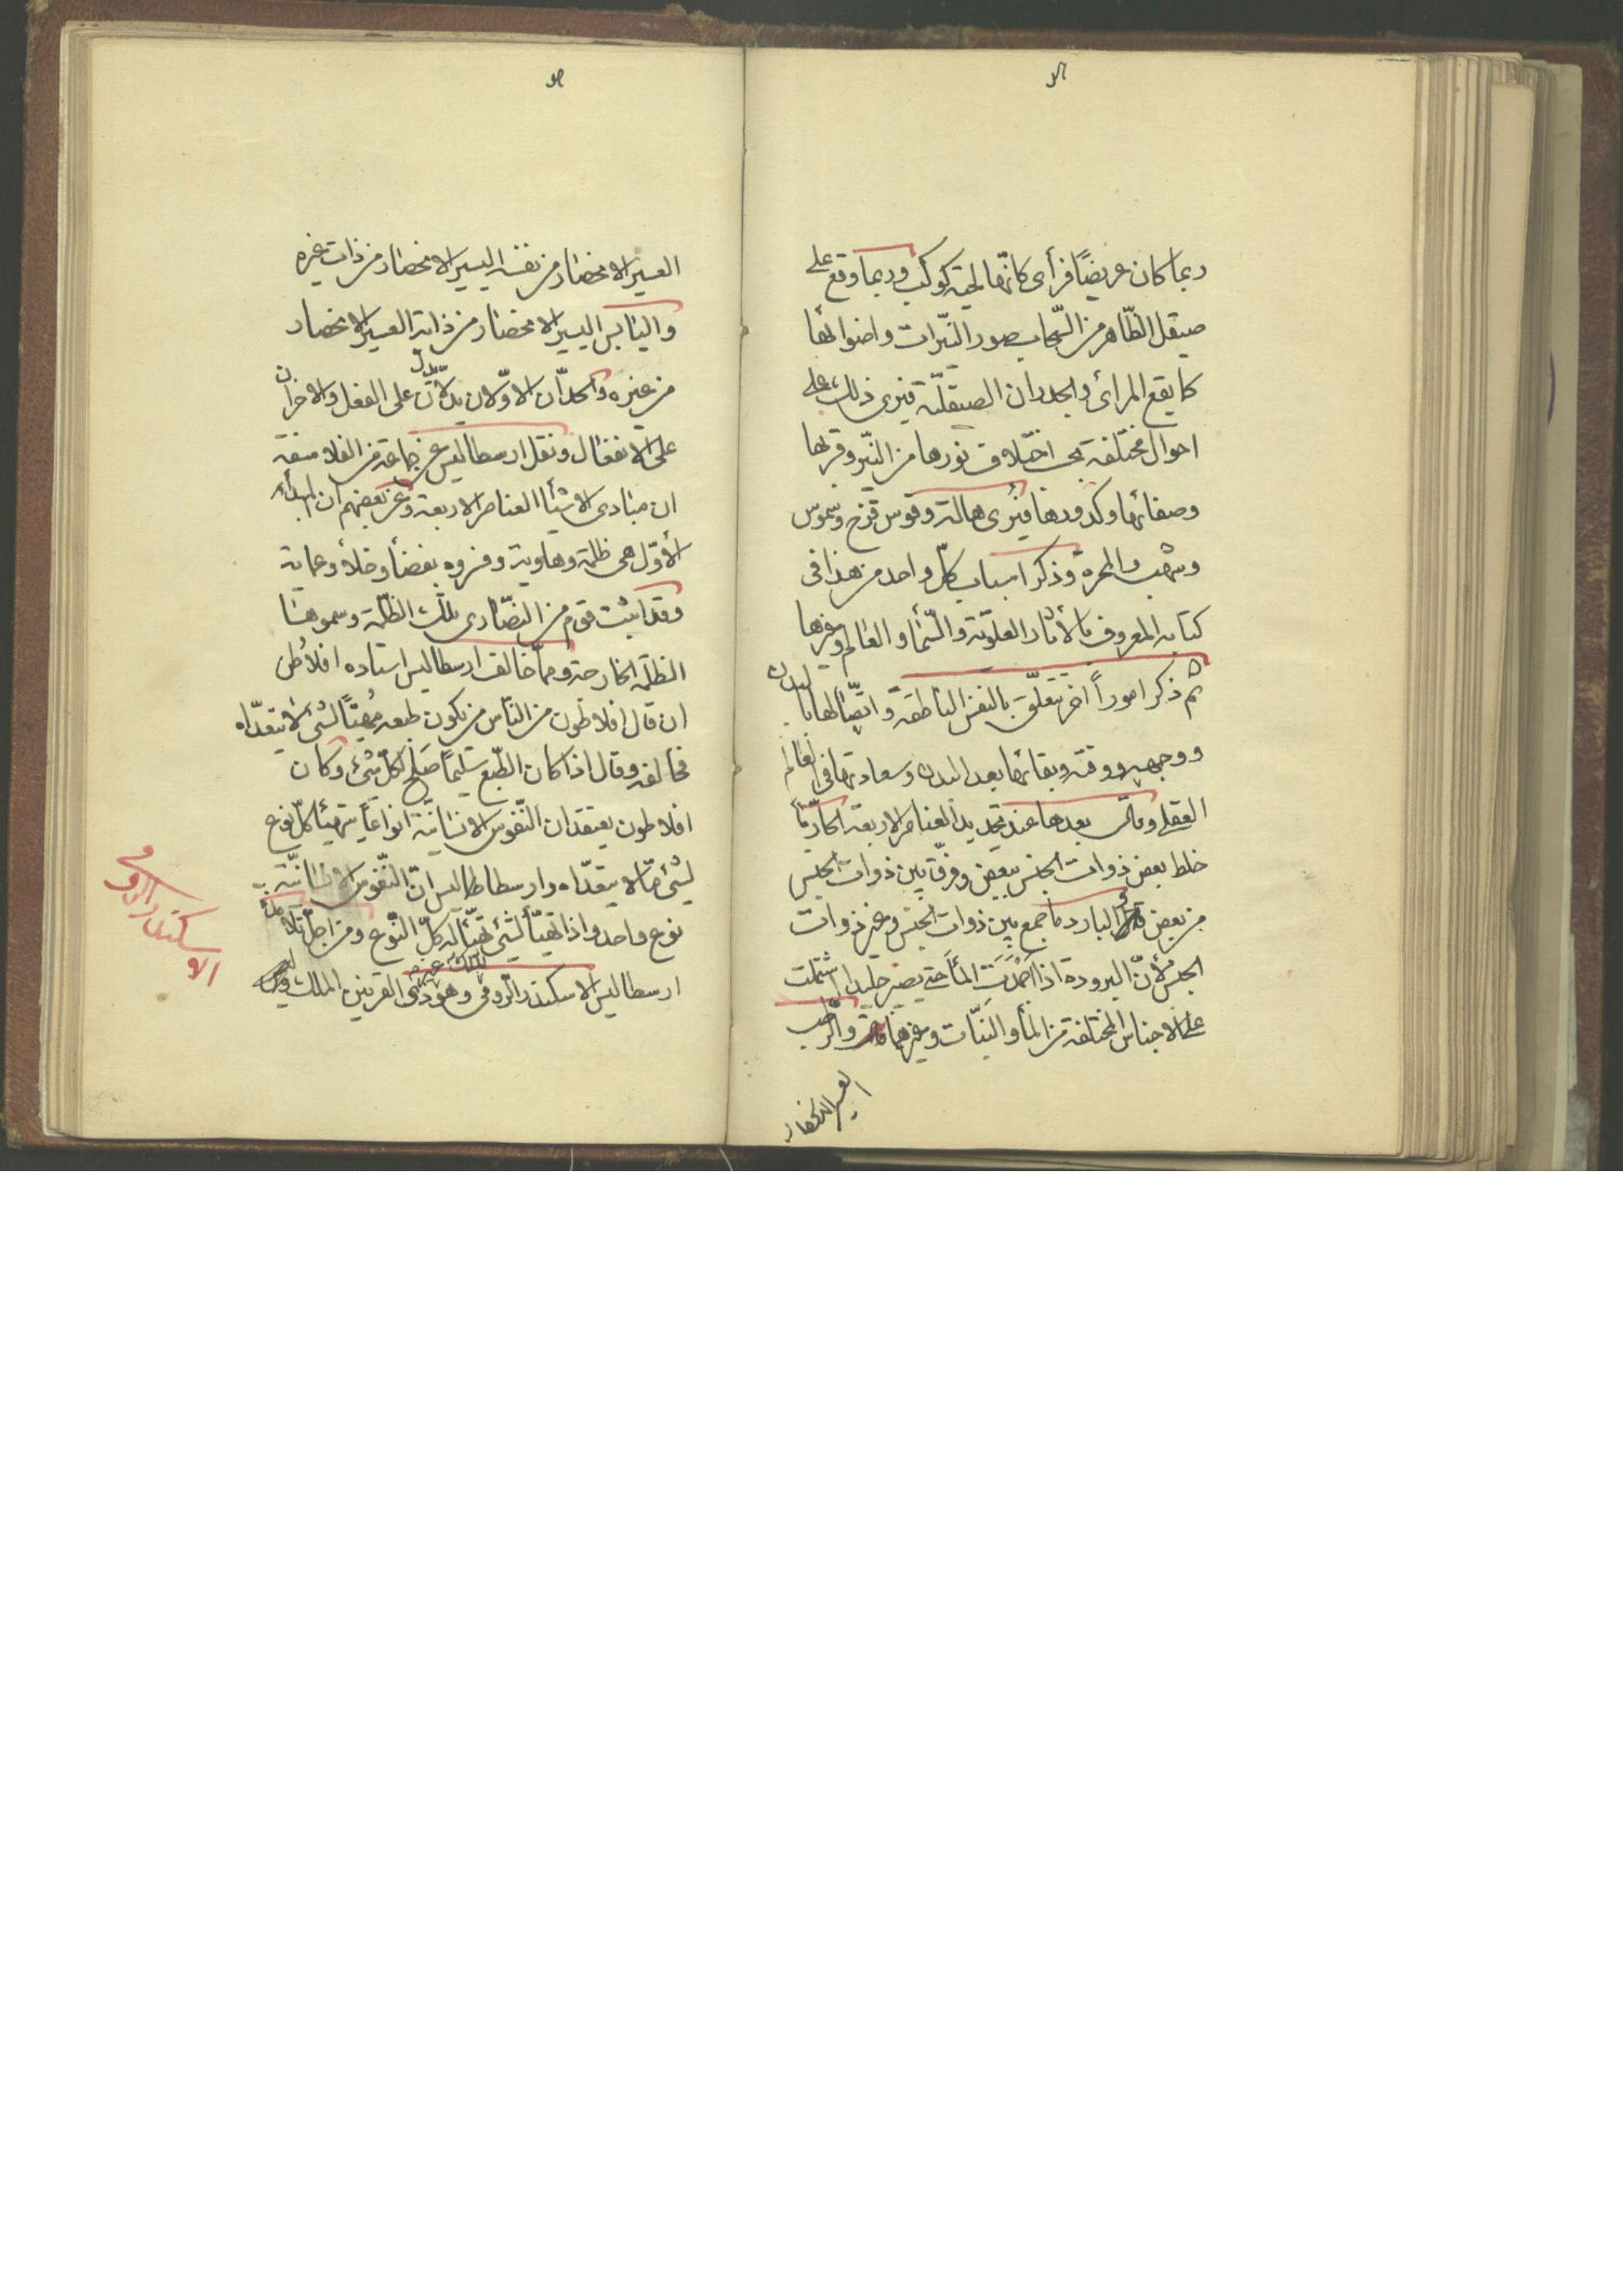 ربما كان عريضًا فرأى كانّها لحية كوكب وربما وقع على
صيقل الظّاهر من السّحاب صور النيّرات واضوائها
كما يقع المرائى والجدران الصيقليّة فيرى ذلك على
احوال مختلفة بحسب اختلاف نورها من النيّر وقربها
وصفائها وكدورها فيُرى هالة وقوس قزح وشموس
وشهب والمجرة وذكر اسباب كلّ واحد من هذا فى
كتابه المعروف بالأثار العلويّة والسّمآء والعالم وغيرها
ثم ذكر اموراً اخر يتعلّق بالنفس الناطقة واتصّالها بالبدن
ووجهه ووقته وبقائها بعد البدن وسعادتها فى العالم
العقلى وقال بعدها عند تحديد العناصر الاربعة الحارّ ما
خلط بعض ذوات الجنس ببعض وفرّق بين ذوات الجنس
من بعض البارد ما جمع بين ذوات الجنس وغير ذوات
الجنس لأنّ البرودة اذا اجمدت المآء حتى يصير جليدا اشتملت
على الاجناس المختلفة من المآء والنبّات وغيرهما والرّطب
العسير الانحصار
العسير الانحصار من نفسه اليسير الانحصار من ذات غيره
واليابس اليسير الانحصار من ذاته العسير الانحصار
من غيره والحدّان الاوّلان يدلّان على الفعل والاخران
على الانفعال ونقل ارسطاليس عن جماعة من الفلاسفة
ان مبادى الاشيآء العناصر الاربعة وعن بعضهم ان المبدأ
الأوّل هى ظلمة وهاوية وفسروه بفضآء وخلآء وعماية
وقد اثبت قوم من النصّارى تلك الظلّمة وسموها
الظلّمة الخارجة وممّا خالف ارسطاليس استاده افلاطن
ان قال افلاطون من النّاس من يكون طبعه مُهيّئًا لشئ لا يتعدّاه
فخالفه وقال اذا كان الطّبع سليمًا صَلح لكلّ شئ وكان
افلاطون يعتقد ان النّفوس الانسانيّة انواعًا يتهيّئا كلّ نوع
لشئ ممّا لا يتعدّاه وارسطاطاليس انّ النّفوس الانسانيّة
نوع واحد واذا تهيّأ لشئ تهيّأ له كلّ النّوع ومن اجلّ تلامذة
ارسطاليس الاسكندر الرّومى وهو ذى القرنين الملك
الاسكندر الرومى